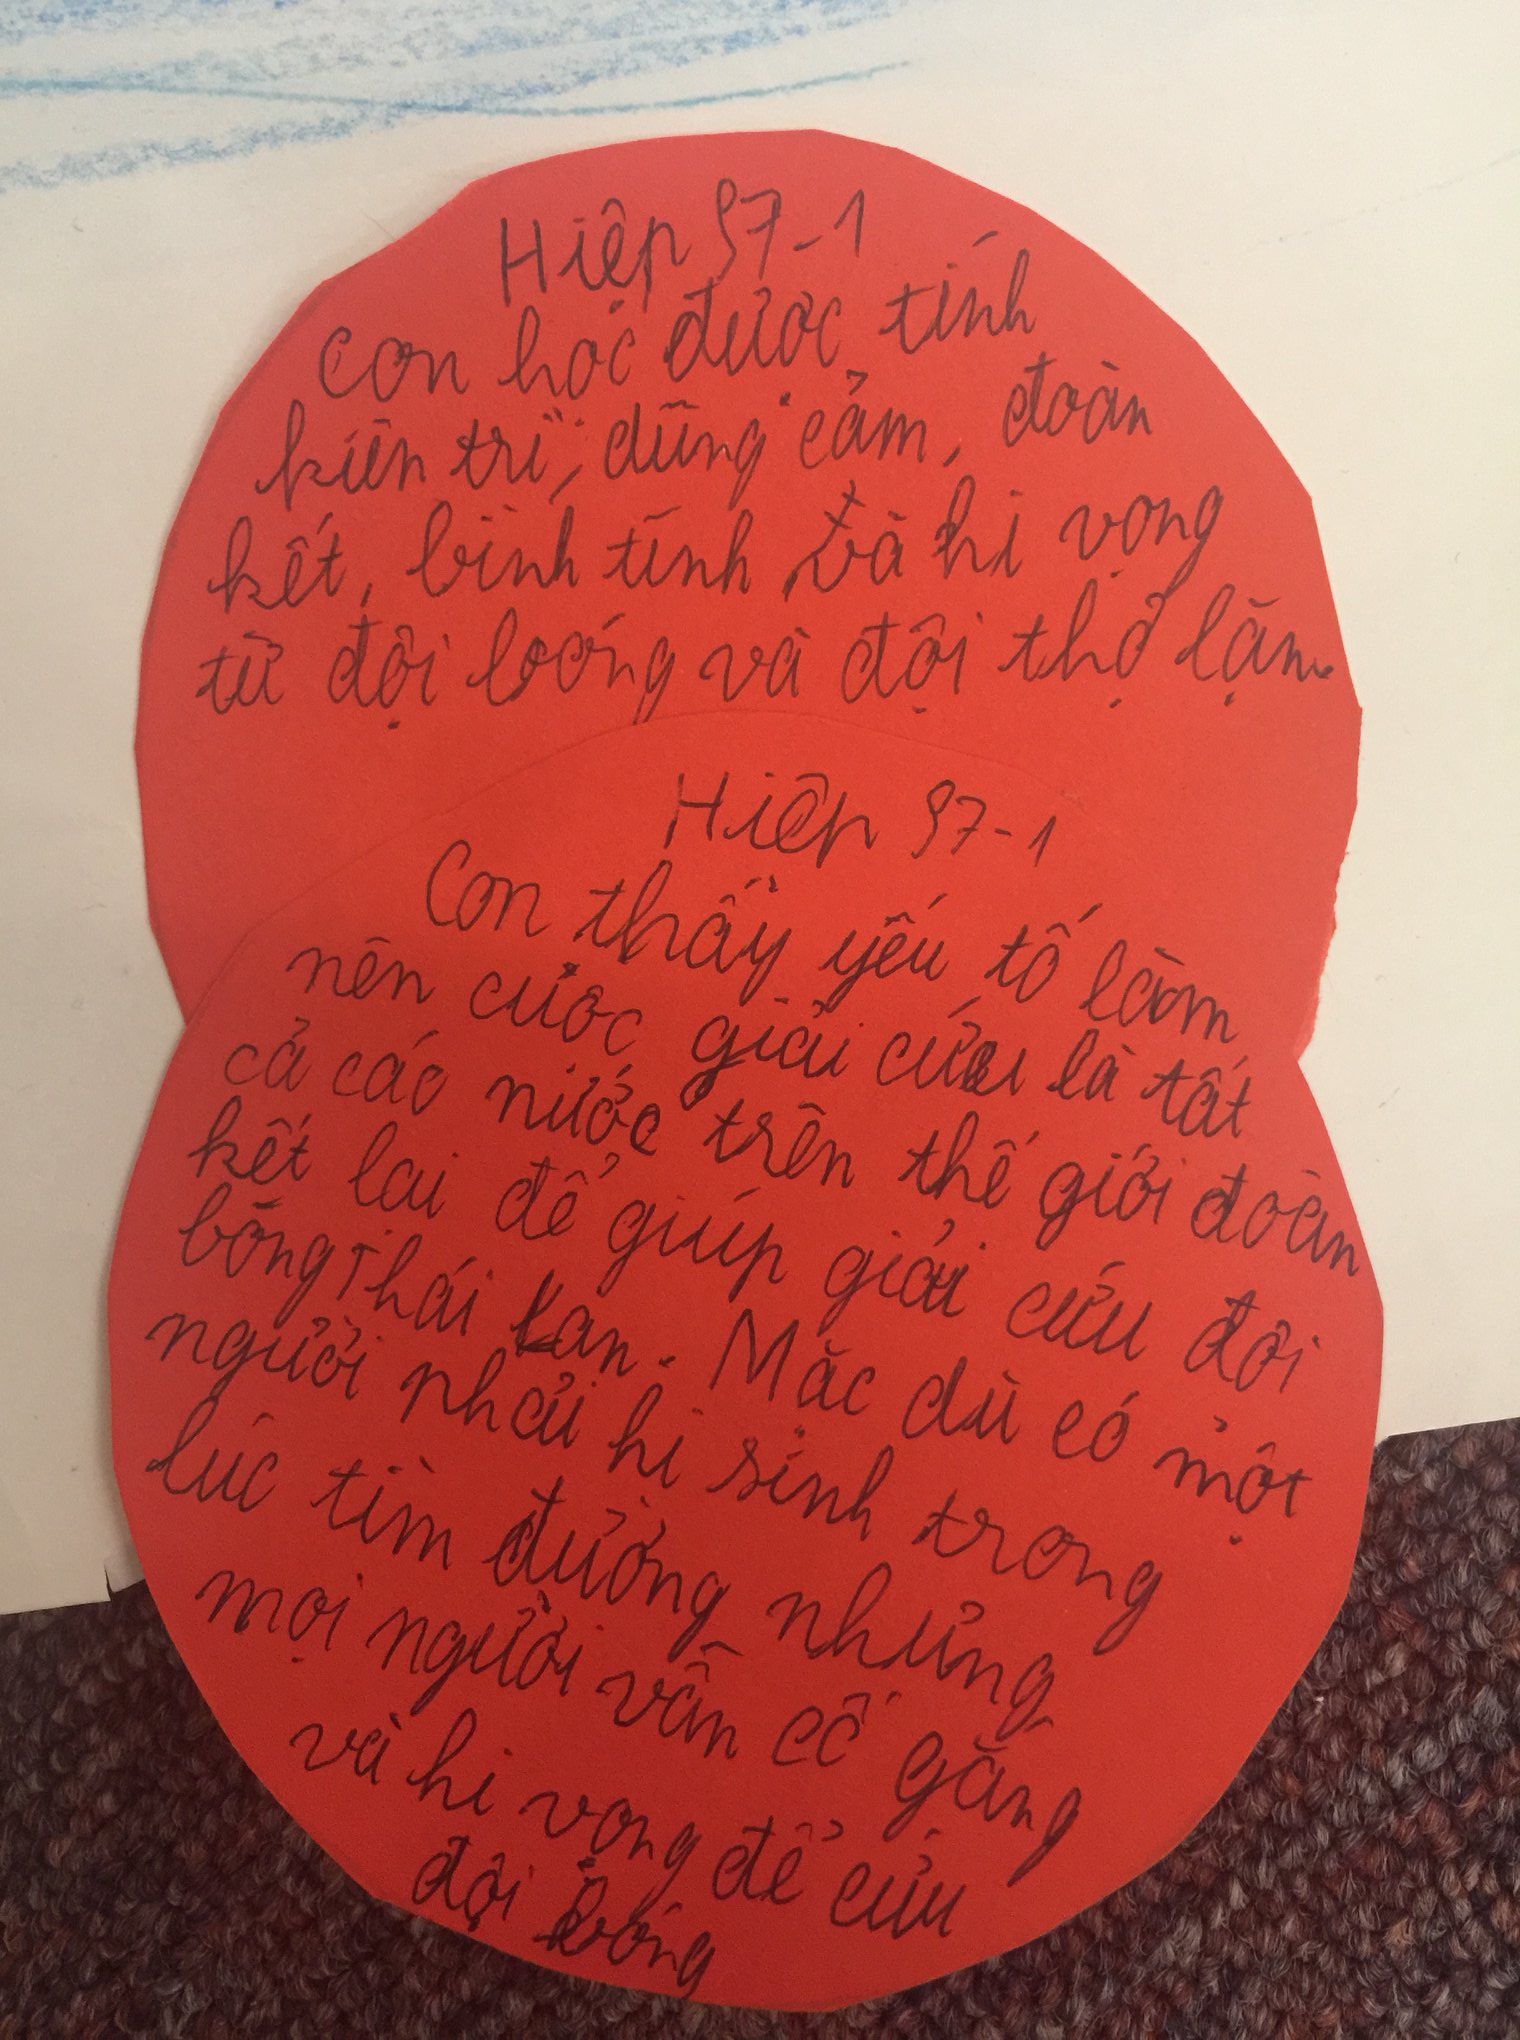 Hiệp S7-1
Con học được tính
kiên trì, dũng cảm, đoàn
kết, bình tĩnh và hi vọng
từ đội bóng và đội thợ lặn.
Hiệp S7-1
Con thấy yếu tố làm
nên cuộc giải cứu là tất
cả các nước trên thế giới đoàn
kết lại để giúp giải cứu đội
bóng Thái Lan. Mặc dù có một
người phải hi sinh trong
lúc tìm đường nhưng
mọi người vẫn cố gắng
và hi vọng để cứu
đội bóng